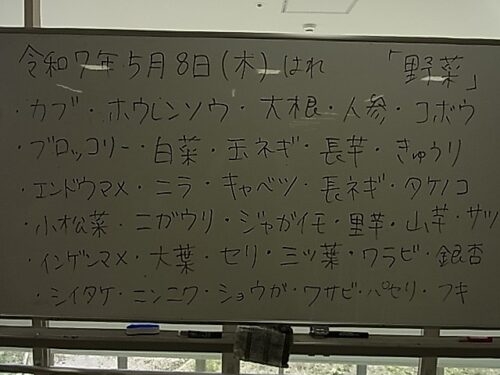 令和7年5月8日(木)はれ 「野菜」
・カブ・ホウレンソウ・大根・人参・コボウ
・ブロッコリー・白菜・玉ネギ・長芋・きゅうり
・エンドウマメ・ニラ・キャベツ・長ネギ・タケノコ
・小松菜・ニガウリ・ジャガイモ・里芋・山芋・サツ
・インゲンマメ・大葉・セリ・三ツ葉・ワラビ・銀杏
・シイタケ・ニンニク・ショウガ・ワサビ・パセリ・フキ